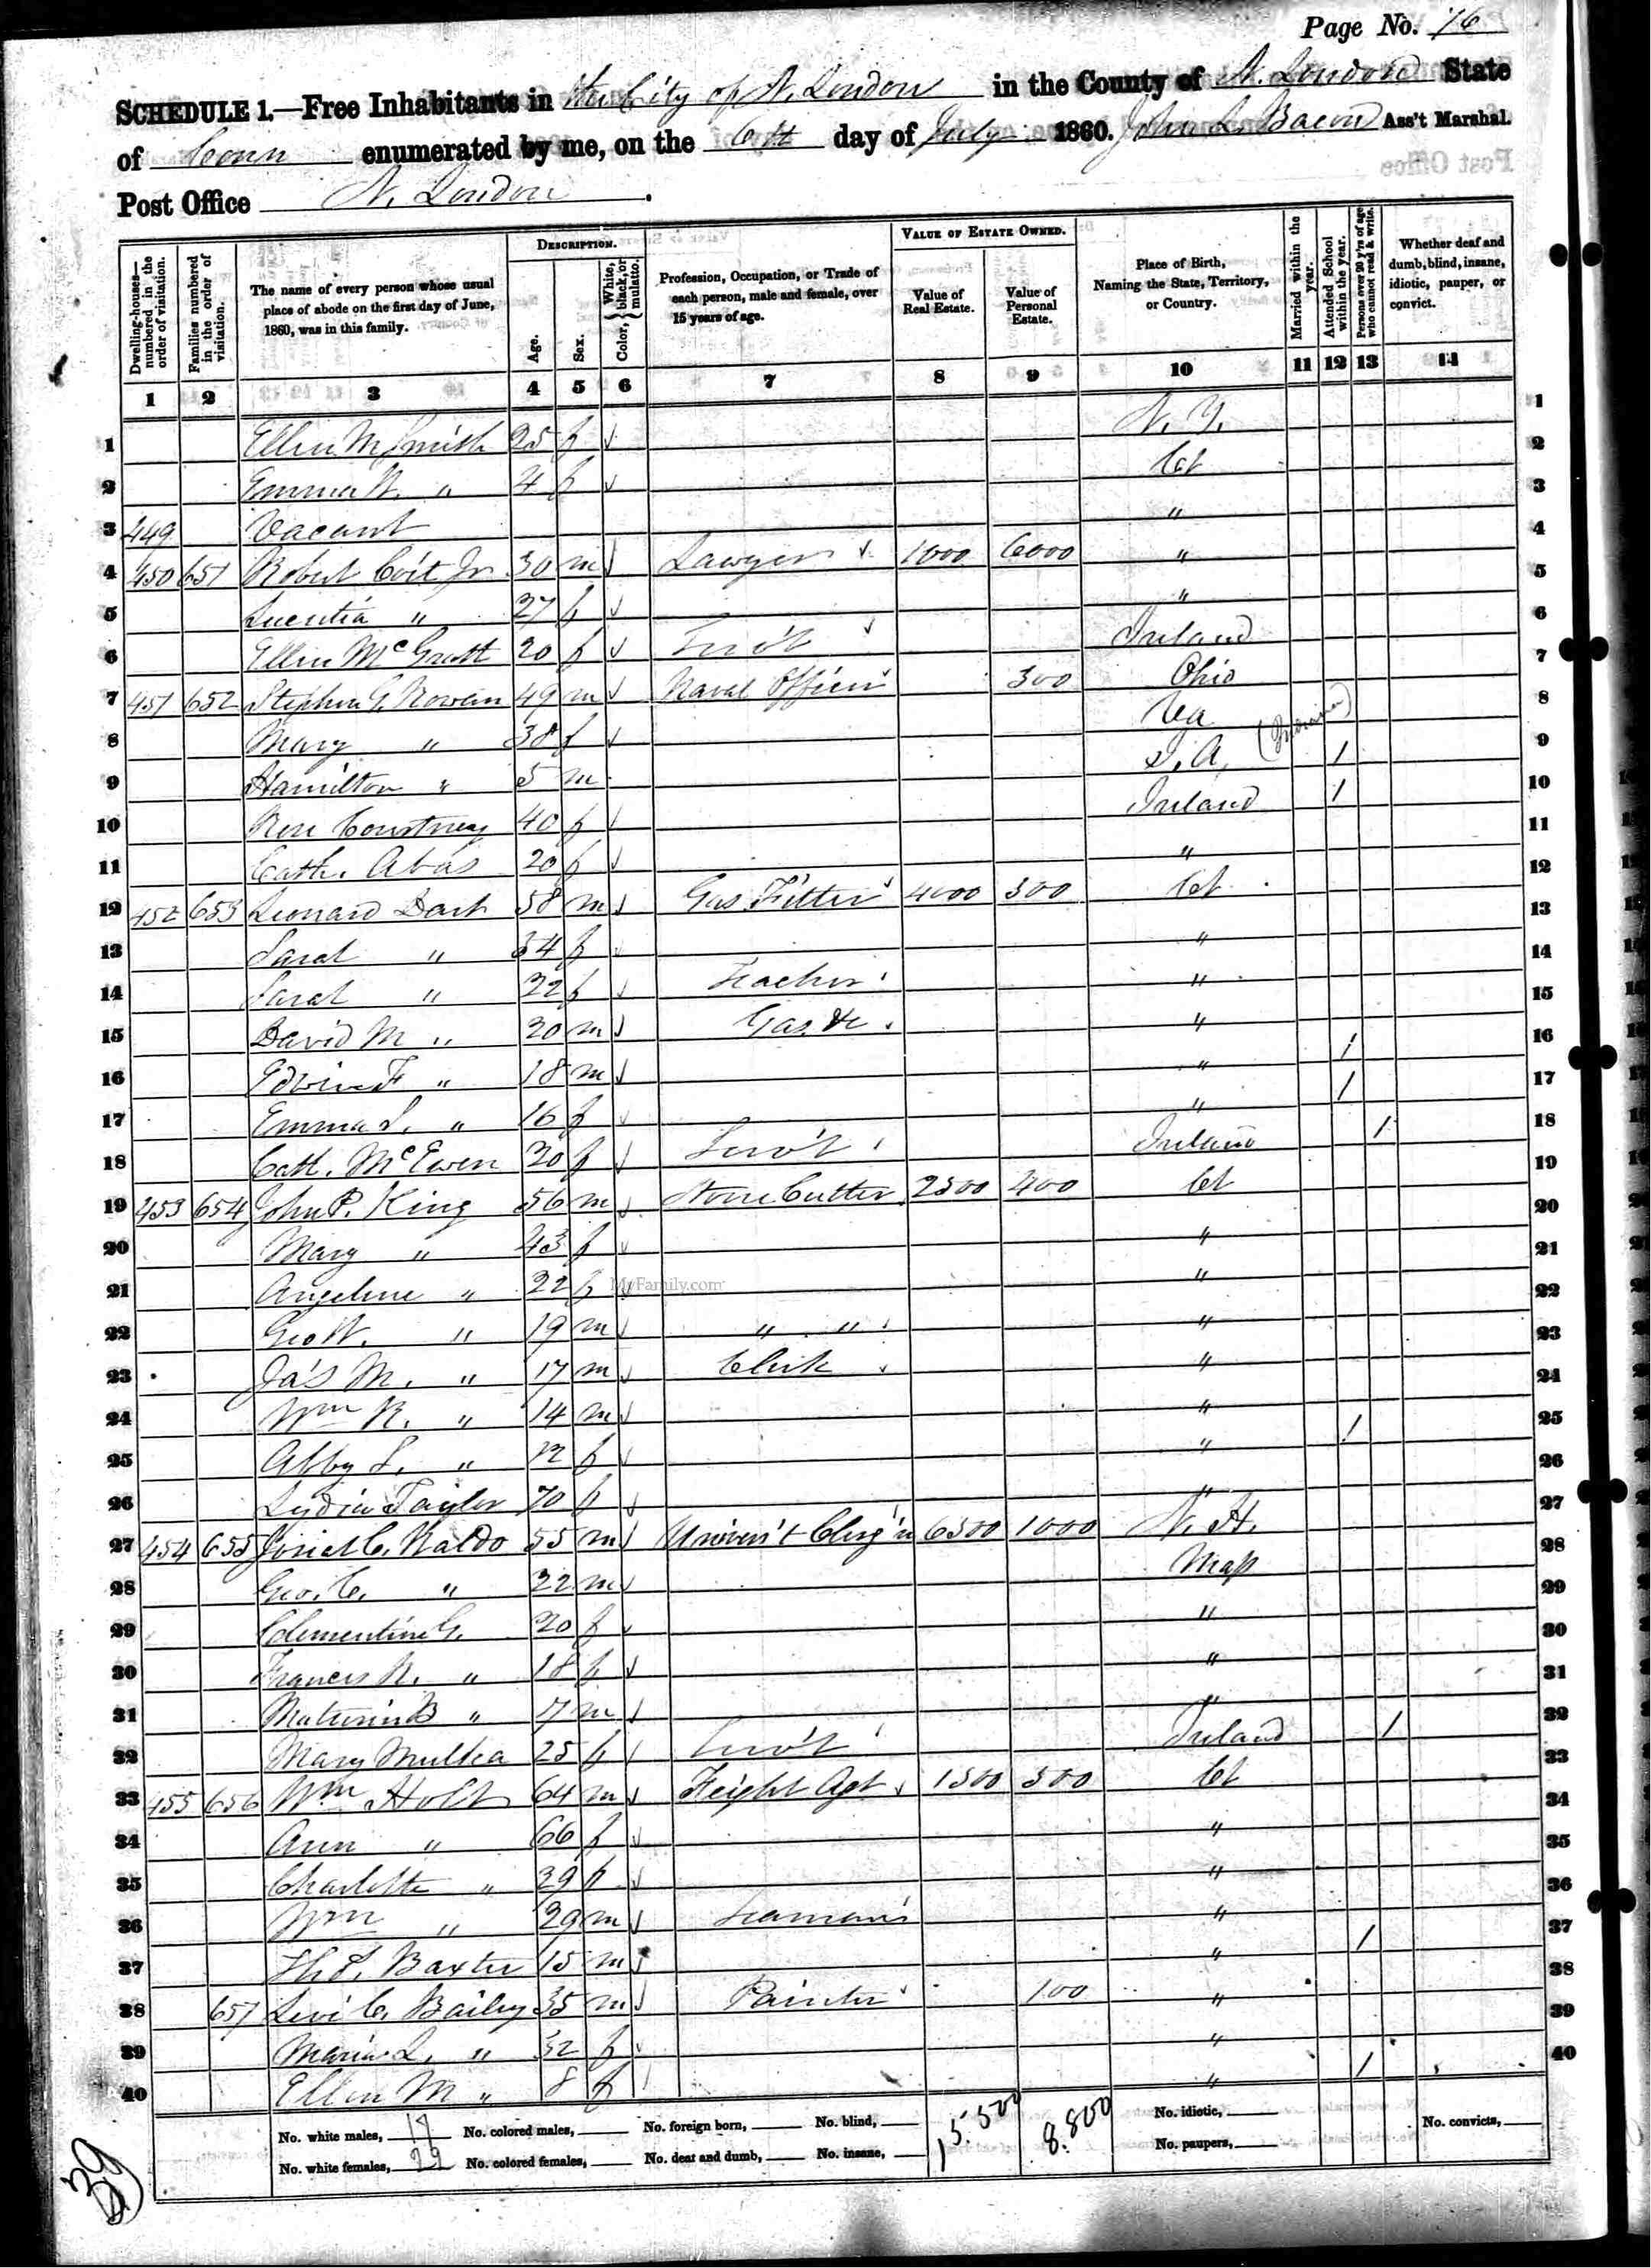 Page No. 76
SCHEDULE 1.—Free Inhabitants in the City of N. London in the County of N. London State
of Conn enumerated by me, on the 6th day of July 1860. John L. Bacon Ass't Marshal.
Post Office N. London.
DESCRIPTION. VALUE OF ESTATE OWNED.
Dwelling-houses—numbered in the order of visitation. Families numbered in the order of visitation. The name of every person whose usual place of abode on the first day of June, 1860, was in this family. Age. Sex. Color, {White, black, or mulatto. Profession, Occupation, or Trade of each person, male and female, over 15 years of age. Value of Real Estate. Value of Personal Estate. Place of Birth, Naming the State, Territory, or Country. Married within the year. Attended School within the year. Persons over 20 y'rs of age who cannot read & write. Whether deaf and dumb, blind, insane, idiotic, pauper, or convict.
1 2 3 4 5 6 7 8 9 10 11 12 13 14
1 Ellen M Smith 25 f N. Y. 1
2 Emma W. " 4 f Ct 2
3 449 Vacant " 3
4 450 651 Robert Coit Jr 30 m Lawyer 1000 6000 " 4
5 Lucretia " 27 f " 5
6 Ellen Mc 20 f Serv't Ireland 6
7 451 652 Stephen C. Rowan 49 m Naval Officer 300 Ohio 7
8 Mary " 38 f Va 8
9 Hamilton " 5 m I.A. (Indiana) 1 9
10 Courtney 40 f Ireland 1 10
11 Cath. 20 f " 11
12 452 653 Leonard Dart 58 m Gas Fitter 4000 500 Ct 12
13 Sarah " 54 f " 13
14 Sarah " 22 f Teacher " 14
15 David M " 20 m Gas &c " 15
16 Edwin F " 18 m " 1 16
17 Emma S. " 16 f " 1 17
18 Cath. McEwen 30 f Serv't Ireland 1 18
19 453 654 John P. King 56 m Stone Cutter 2500 400 Ct 19
20 Mary " 43 f " 20
21 Angeline " 22 f " 21
MyFamily.com
22 Geo W. " 19 m " " " 22
23 Ja's M. " 17 m Clerk " 23
24 Wm R. " 14 m " 24
25 Abby S. " 12 f " 1 25
26 Lydia Taylor 70 f " 26
27 454 655 C. Waldo 55 m Univers't Clerg'n 6500 1000 N. H. 27
28 Geo. C. " 22 m Mass 28
29 Clementine G. 20 f " 29
30 Frances R. " 18 f " 30
31 Maturin B " 7 m " 31
32 Mary 25 f Serv't Ireland 1 32
33 455 656 Wm Holt 64 m Freight Agt 1500 500 Ct 33
34 Ann " 66 f " 34
35 Charlotte " 39 f " 35
36 Wm " 29 m Seaman " 36
37 Baxter 15 m " 1 37
38 657 Levi C. Bailey 35 m Painter 100 " 38
39 Maria L. " 32 f " 39
40 Ellen M " 8 f " 1 40
No. white males, 17 No. colored males, No. foreign born, No. blind, 15.500 8.800 No. idiotic,
No. white females, 22 No. colored females, No. deaf and dumb, No. insane, No. paupers, No. convicts,
39